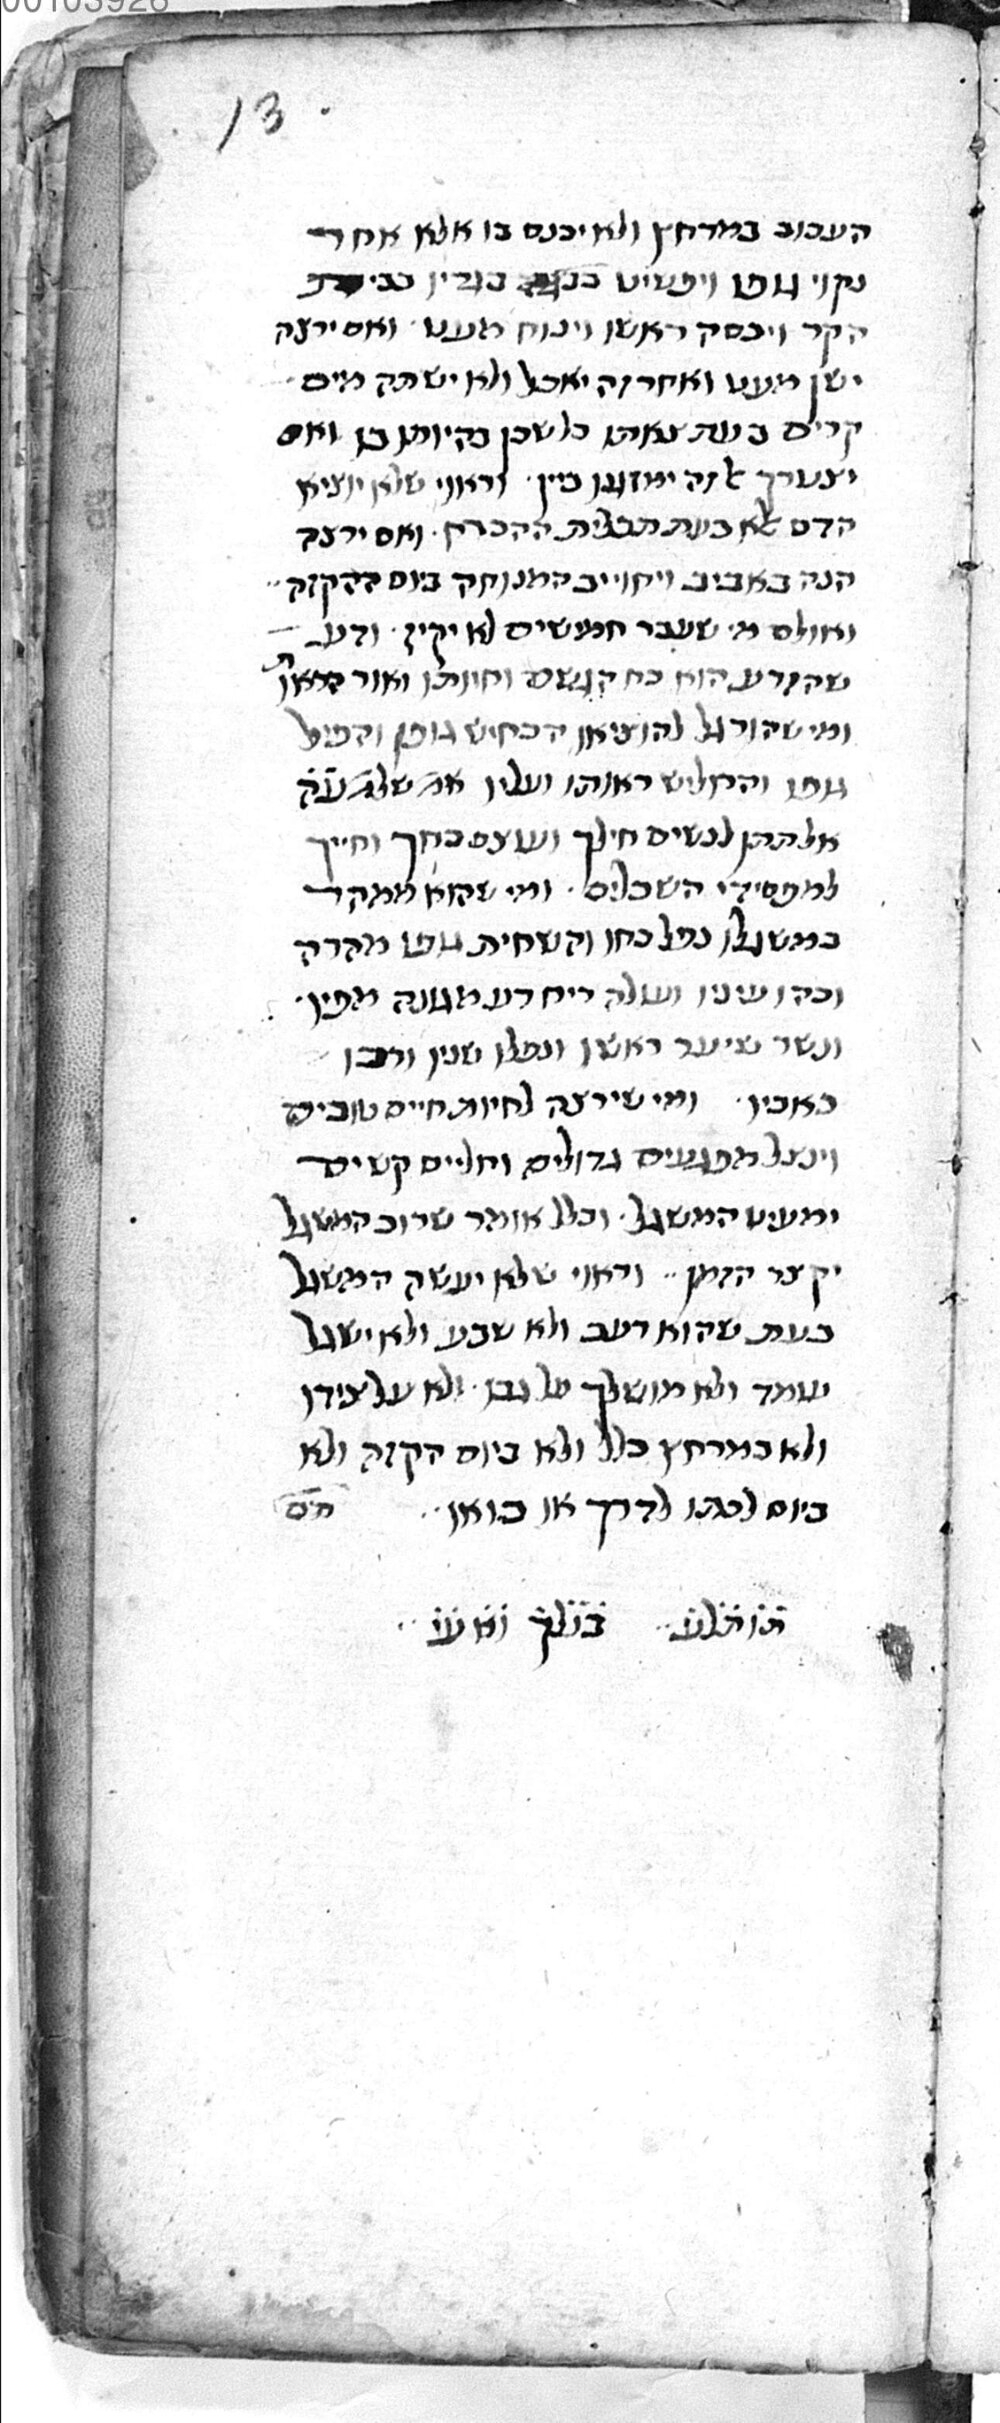 00103928
13
העכוב במרחץ ולא יכנס בו אלא אחר
נקוי גופו ויפשיט בגדיו בבית
הקר ויכסה ראשו וינוח מעט · ואם ירצה
ישן מעט ואחר זה יאכל ולא ישתה מים
קרים בעת צאתו כל שכן בהיותו בו ואם
יצטרך לזה ימזגנו ביין · וראוי שלא יוציא
הדם אלא בעת תכלית ההכרח · ואם ירצה
הנה באביב ויחוייב המנוחה ביום ההקזה ··
ואולם מי שעבר חמשים לא יקיז · ודע
שהזרע הוא כח הגשם וחיותו ואור המראות
ומי שהורגל להוציאו הכחיש גופו והפיל
גופו והחליש ראותו ועליו אמ׳ שלמה ע״ה
אל תתן לנשים חילך ועוצם כחך וחייך
למפסידי השכלים · ומי שהוא ממהר
במשגלו נפל כחו והשחית גופו מהרה
וכהו עיניו ועולה ריח רע מגונה מפיו ·
ונשר שיער ראשו ונפלו שניו ורבו
כאביו · ומי שירצה לחיות חיים טובים
וינצל מפגעים גדולים וחליים קשים
ימעיט המשגל · וכלל אומר שרוב המשגל
יקצר הזמן ·· וראוי שלא יעשה המשגל
בעת שהוא רעב ולא שבע ולא ישגל
עומד ולא מושלך על גבו · ולא על צידו
ולא במרחץ כלל ולא ביום הקזה ולא
ביום לכתו לדרך או בואו ·· תם
תותלע ··